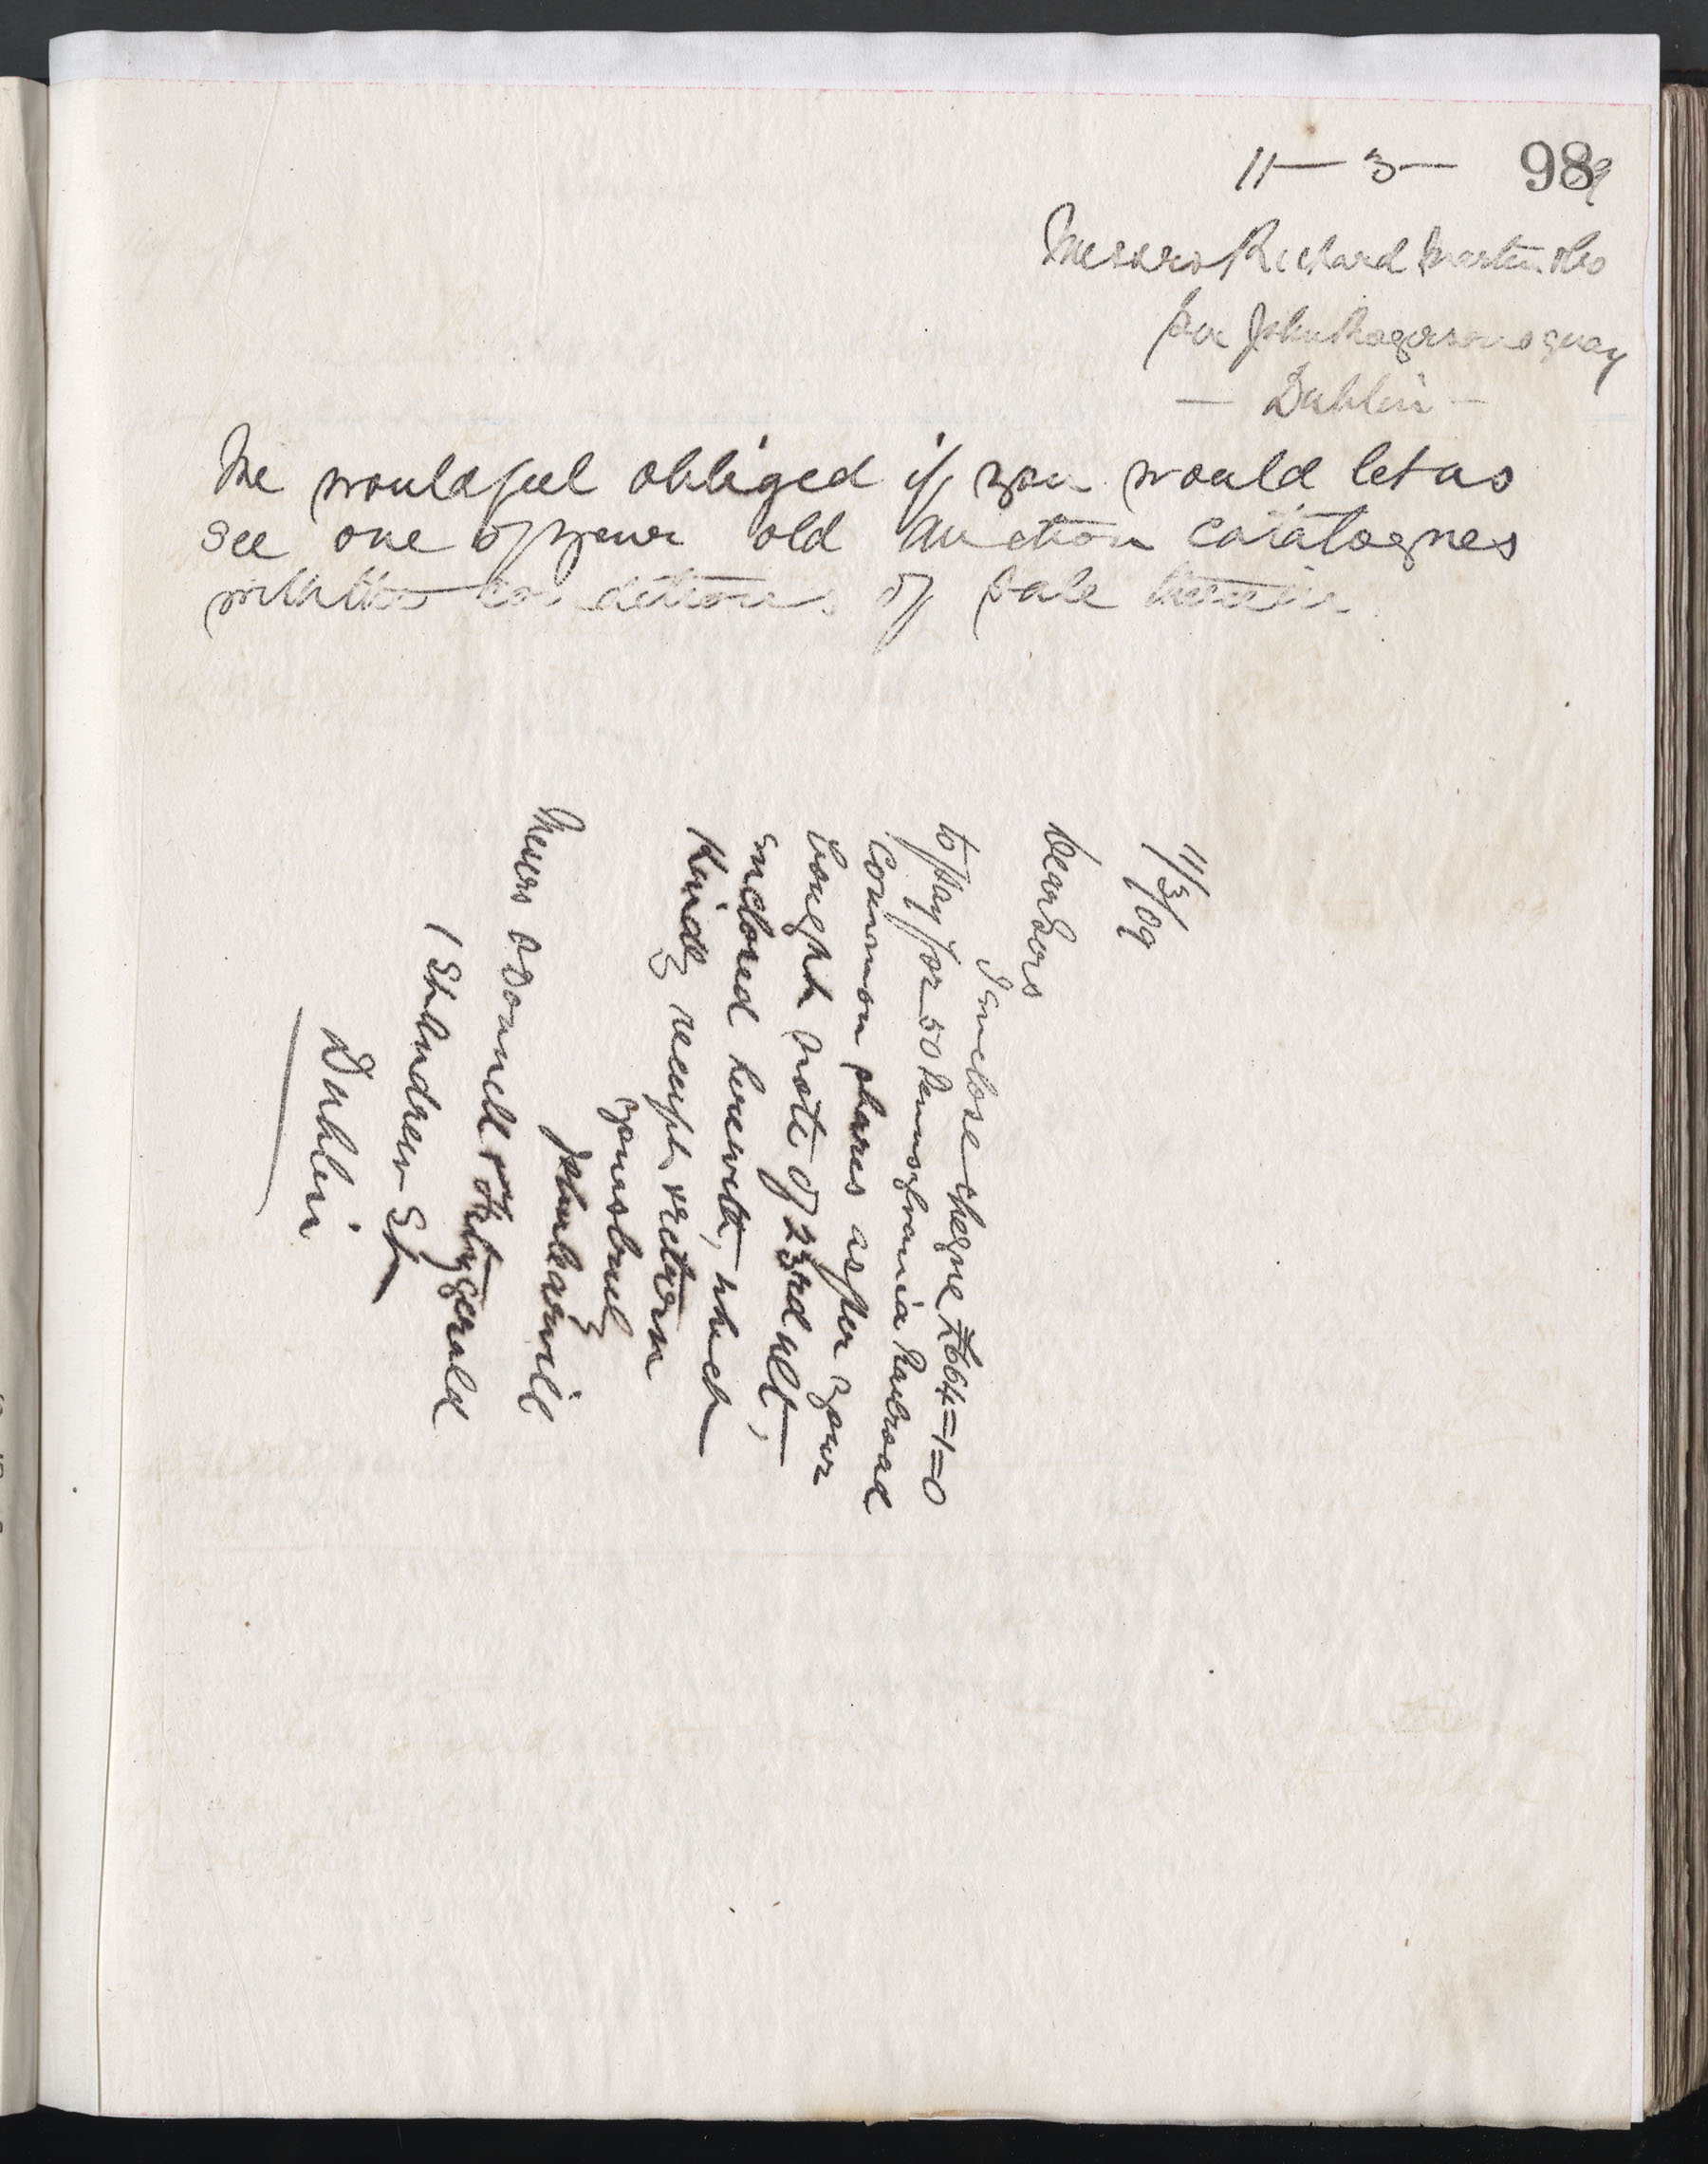 11 — 3 — 9
98
Messrs Richard Martin & Co
Sir John Rogersons quay
— Dublin —
We would feel obliged if you would let us
see one of your old Auction Catatogues
with the conditions of Sale therein.
11/3/09
Dear Sirs
I enclose cheque £664=1=0
to pay for 50 Pennsylvania Railroad
Common shares as per your
bought note of 23rd ult,
enclosed herewith, which
Kindly receipt & return
yours truly
Messrs O Donnell & Fitzgerald
1 St Andrew St
Dublin